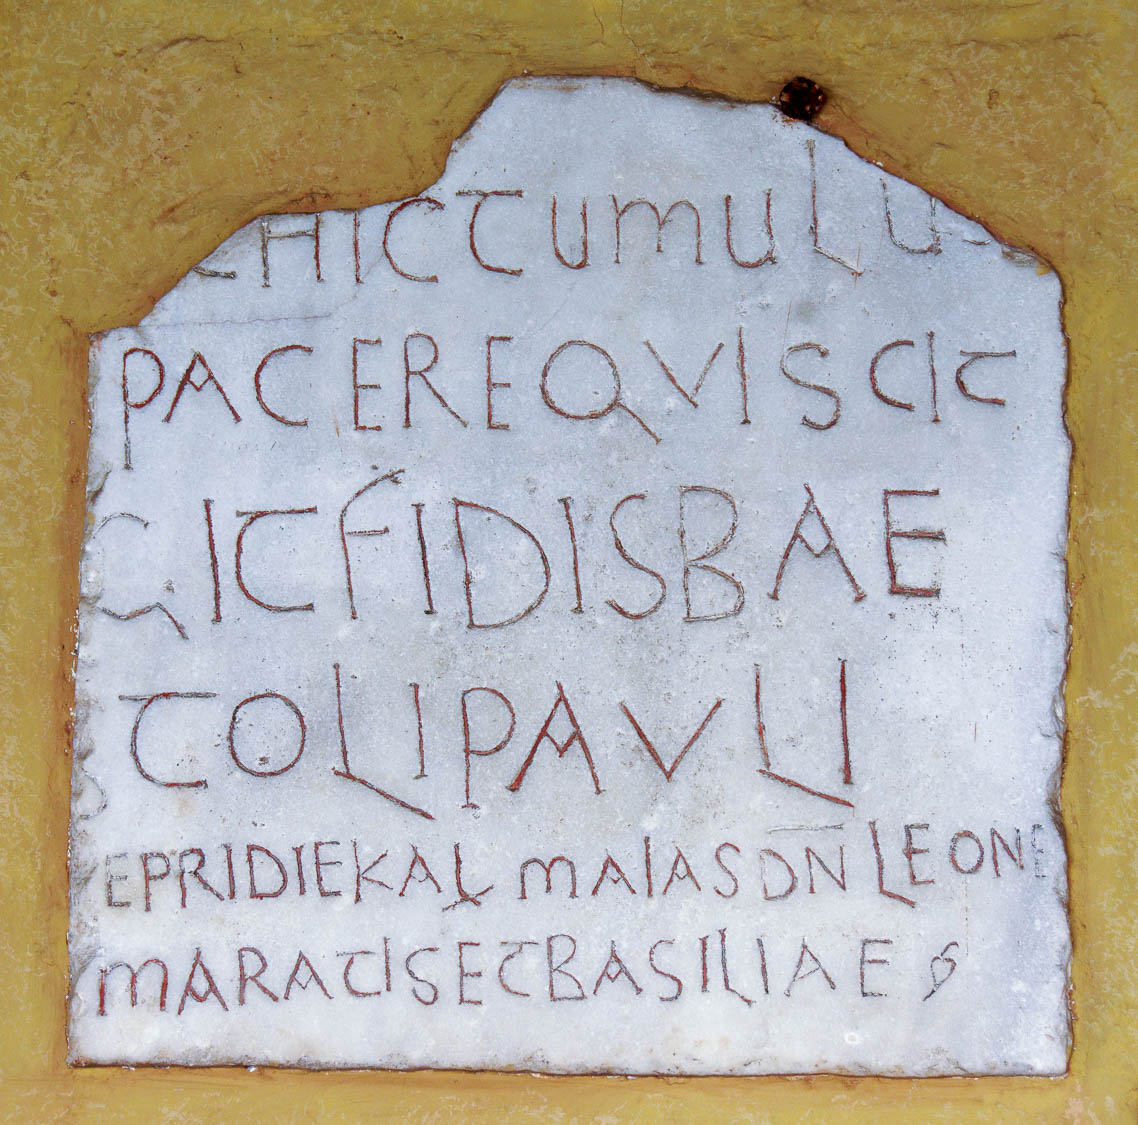 HICTUMULU
PACEREQVISCIT
GITFIDISBAE
TOLIPAVLI
EPRIDIEKAL MAIASDN LEONE
MARATISETBASILIAE